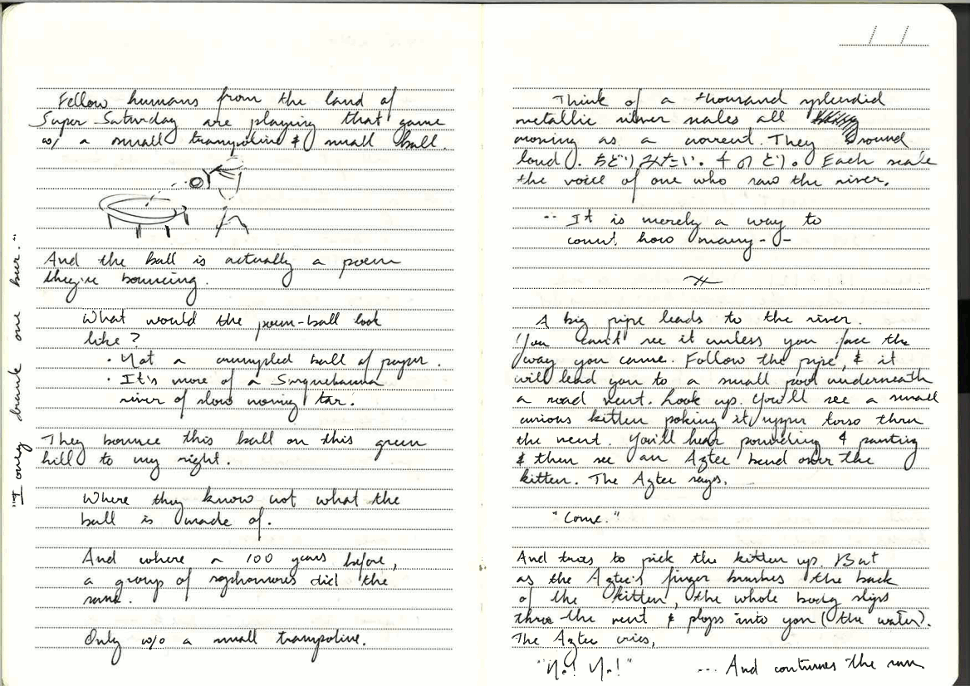 Fellow humans from the land of
Super Saturday are playing that game
w/ a small trampoline & small ball.
And the ball is actually a poem
they're bouncing.
What would the poem-ball look
like?
· Not a crumpled ball of paper.
· It's more of a
river of slow moving tar.
They bounce this ball on this green
hill to my right.
Where they know not what the
ball is made of.
And where a 100 years before,
a group of sophomores did the
same.
Only w/o a small trampoline.
"I only drank one beer."
Think of a thousand splendid
metallic river scales all
moving as a current. They sound
loud. ちどりみたい。千のとり。Each scale
the voice of one who saw the river.
It is merely a way to
count how many
A big pipe leads to the river.
You can't see it unless you face the
way you came. Follow the pipe, & it
will lead you to a small pool underneath
a road vent. Look up. You'll see a small
curious kitten poking it upper torso thru
the vent. You'll hear pounding & panting
& then see an Aztec bend over the
kitten. The Aztec says,
"Come."
And tries to pick the kitten up. But
as the Aztec's finger brushes the back
of the kitten, the whole body slips
thru the vent & plops into you (the water).
The Aztec cries,
"No! No!" ... And continues the run